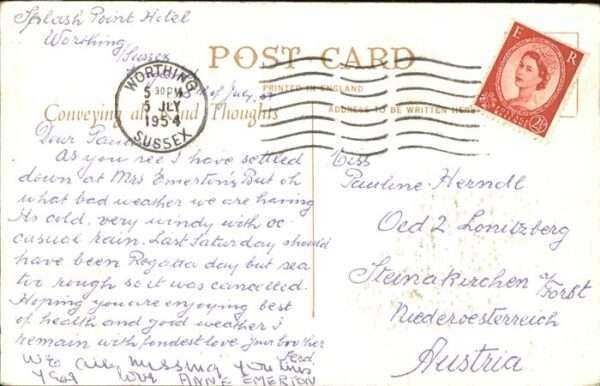 Splash Point Hotel
Worthing
Sussex
of July, 54
POST CARD
PRINTED IN ENGLAND
ADDRESS TO BE WRITTEN HERE
Conveying all Kind Thoughts
WORTHING
5 30 PM
5 JLY
1954
SUSSEX
E R
2½
Dear
As you see I have settled
down at Mrs Emerton's But oh
what bad weather we are having
Its cold, very windy with oc-
casual rain. Last Saturday should
have been Regatta day but sea
too rough so it was cancelled.
Hoping you are enjoying best
of health and good weather I
remain with fondest love your brother
Ferd.
We all missing you lots
love ANNE EMERTON
Miss
Pauline Herndl
Oed 2 Lonitzberg
Steinakirchen a/Forst
Niederoesterreich
Austria